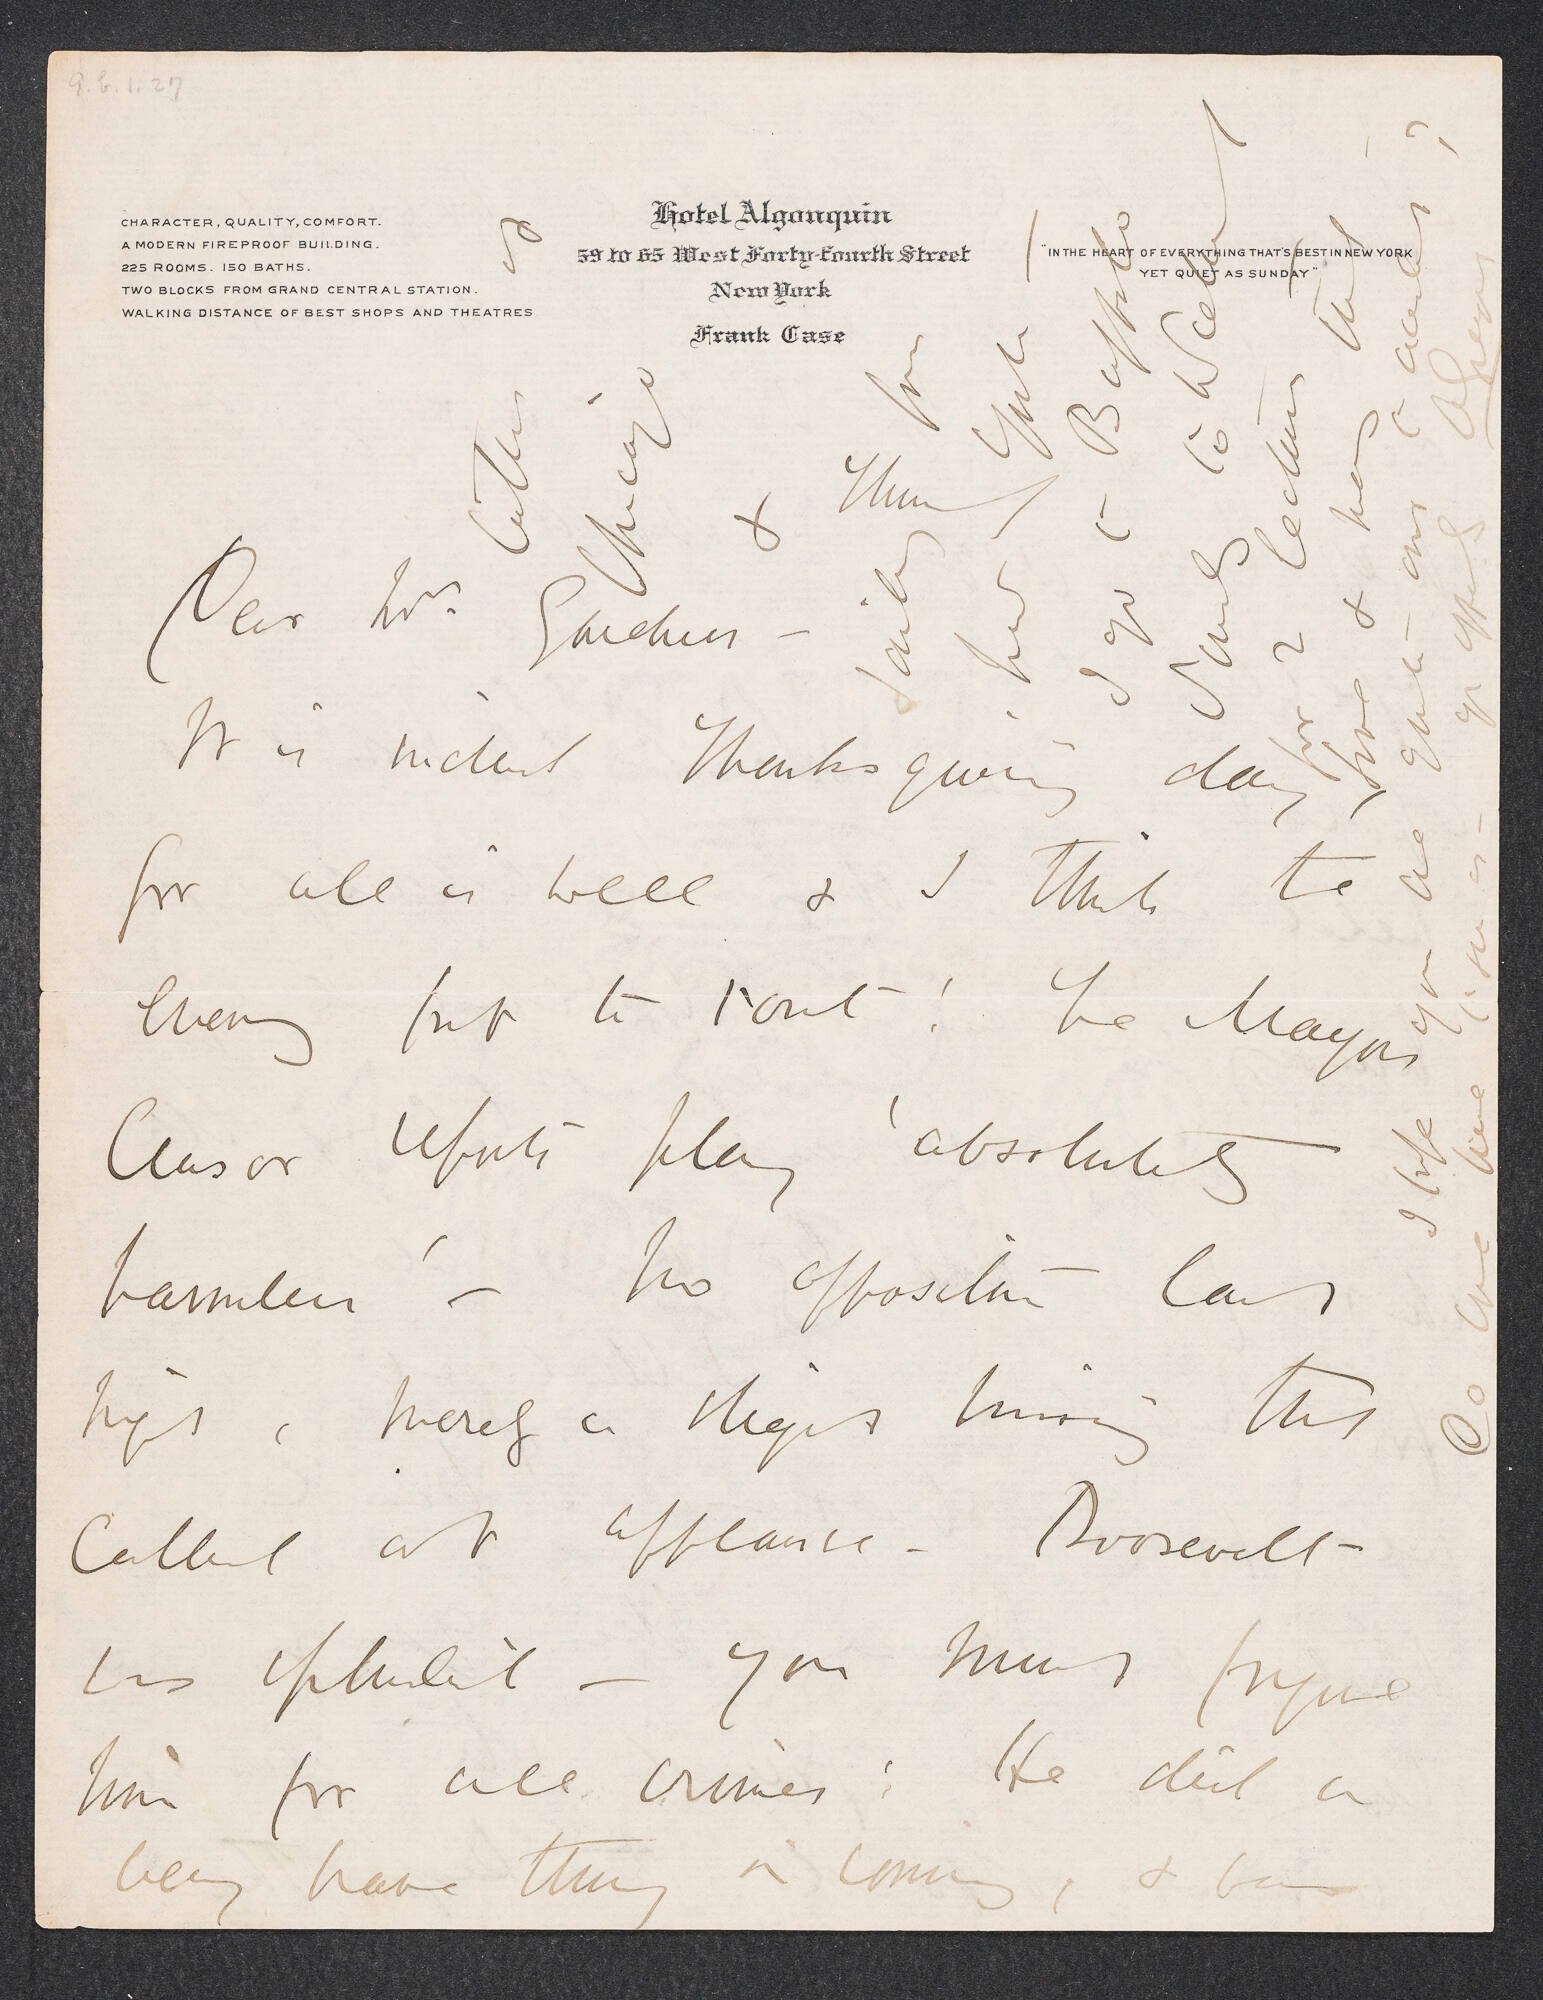 9.6.1.27
CHARACTER, QUALITY, COMFORT.
A MODERN FIREPROOF BUILDING.
225 ROOMS. 150 BATHS.
TWO BLOCKS FROM GRAND CENTRAL STATION.
WALKING DISTANCE OF BEST SHOPS AND THEATRES
Hotel Algonquin
59 to 65 West Forty-Fourth Street
New York
Frank Case
"IN THE HEART OF EVERYTHING THAT'S BEST IN NEW YORK
YET QUIET AS SUNDAY"
Dear Mrs. Gardner –
It is indeed Thanksgiving day
for all is well & I think the
enemy put to rout! The Mayors
Censor reports play 'absolutely
harmless' – No opposition last
night, merely a slight hissing that
called out applause – Roosevelt
was splendid – you must forgive
him for all crimes: He did a
very brave thing in coming, & has
Chicago
&
then
sailing from
New York
I go to Buffalo
& to Wells
for 2 lectures
here &
I hope you are quite
Do come
A Gregory